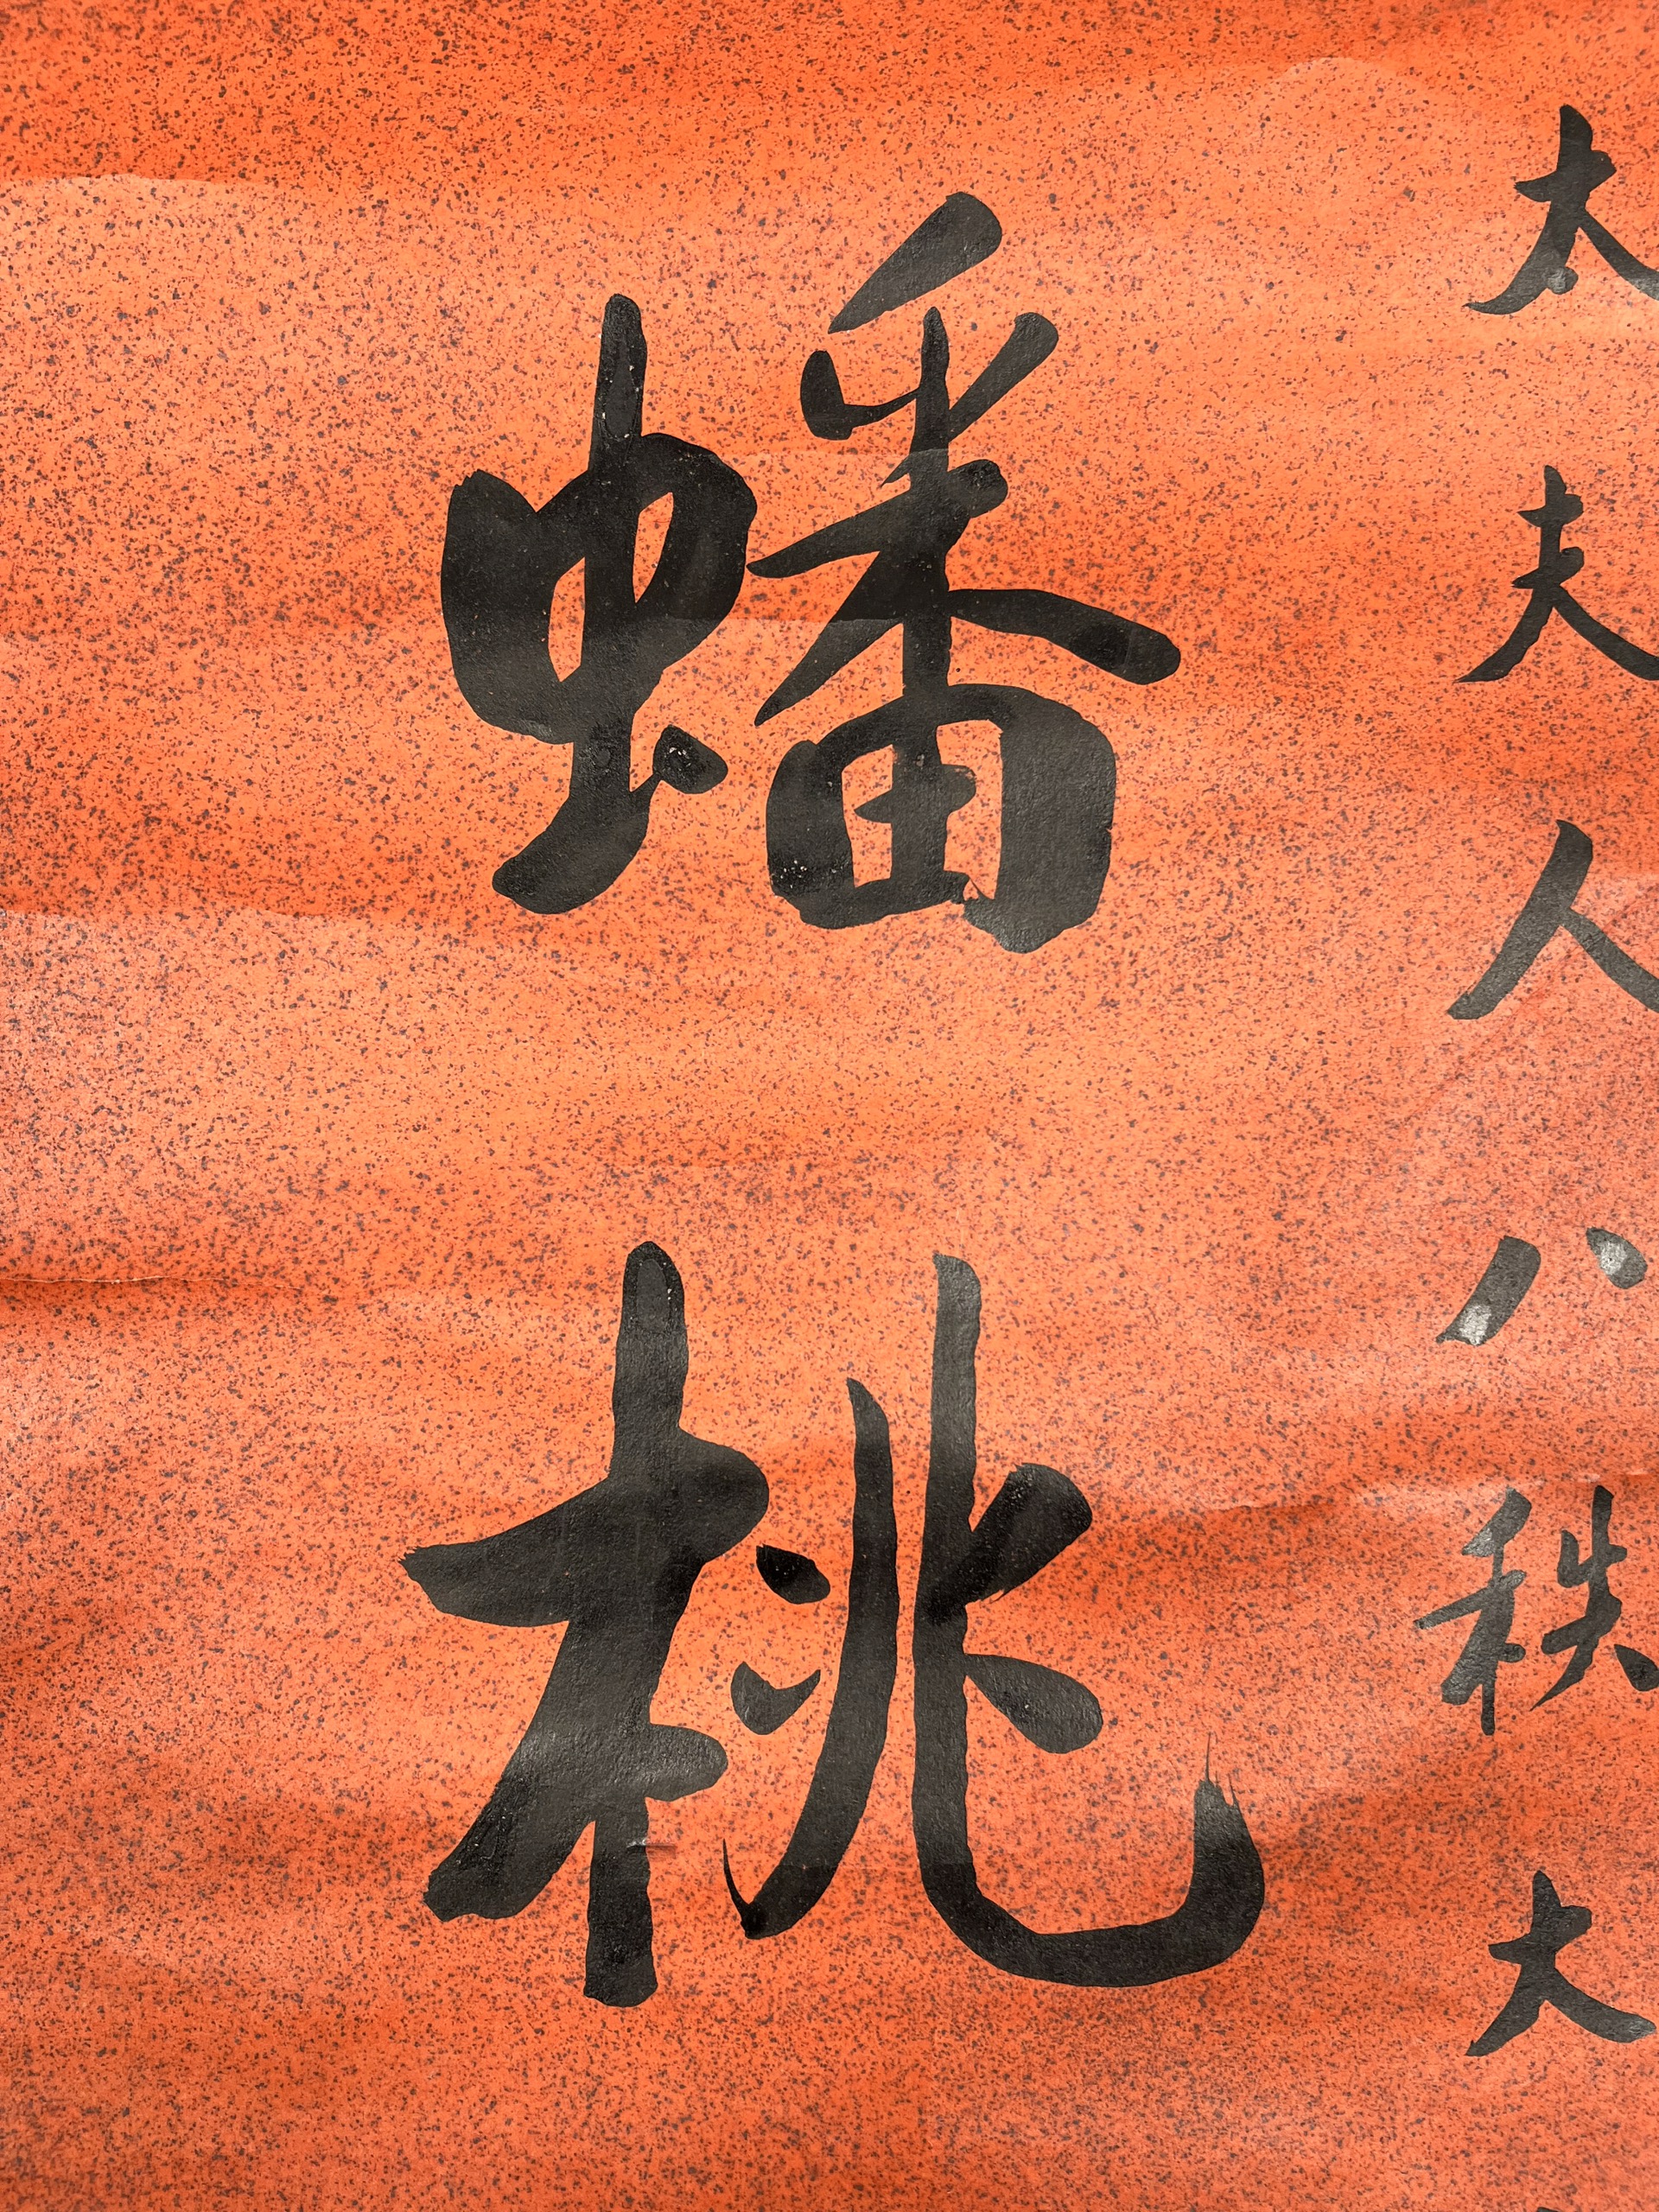 太夫人八秩大
蟠桃